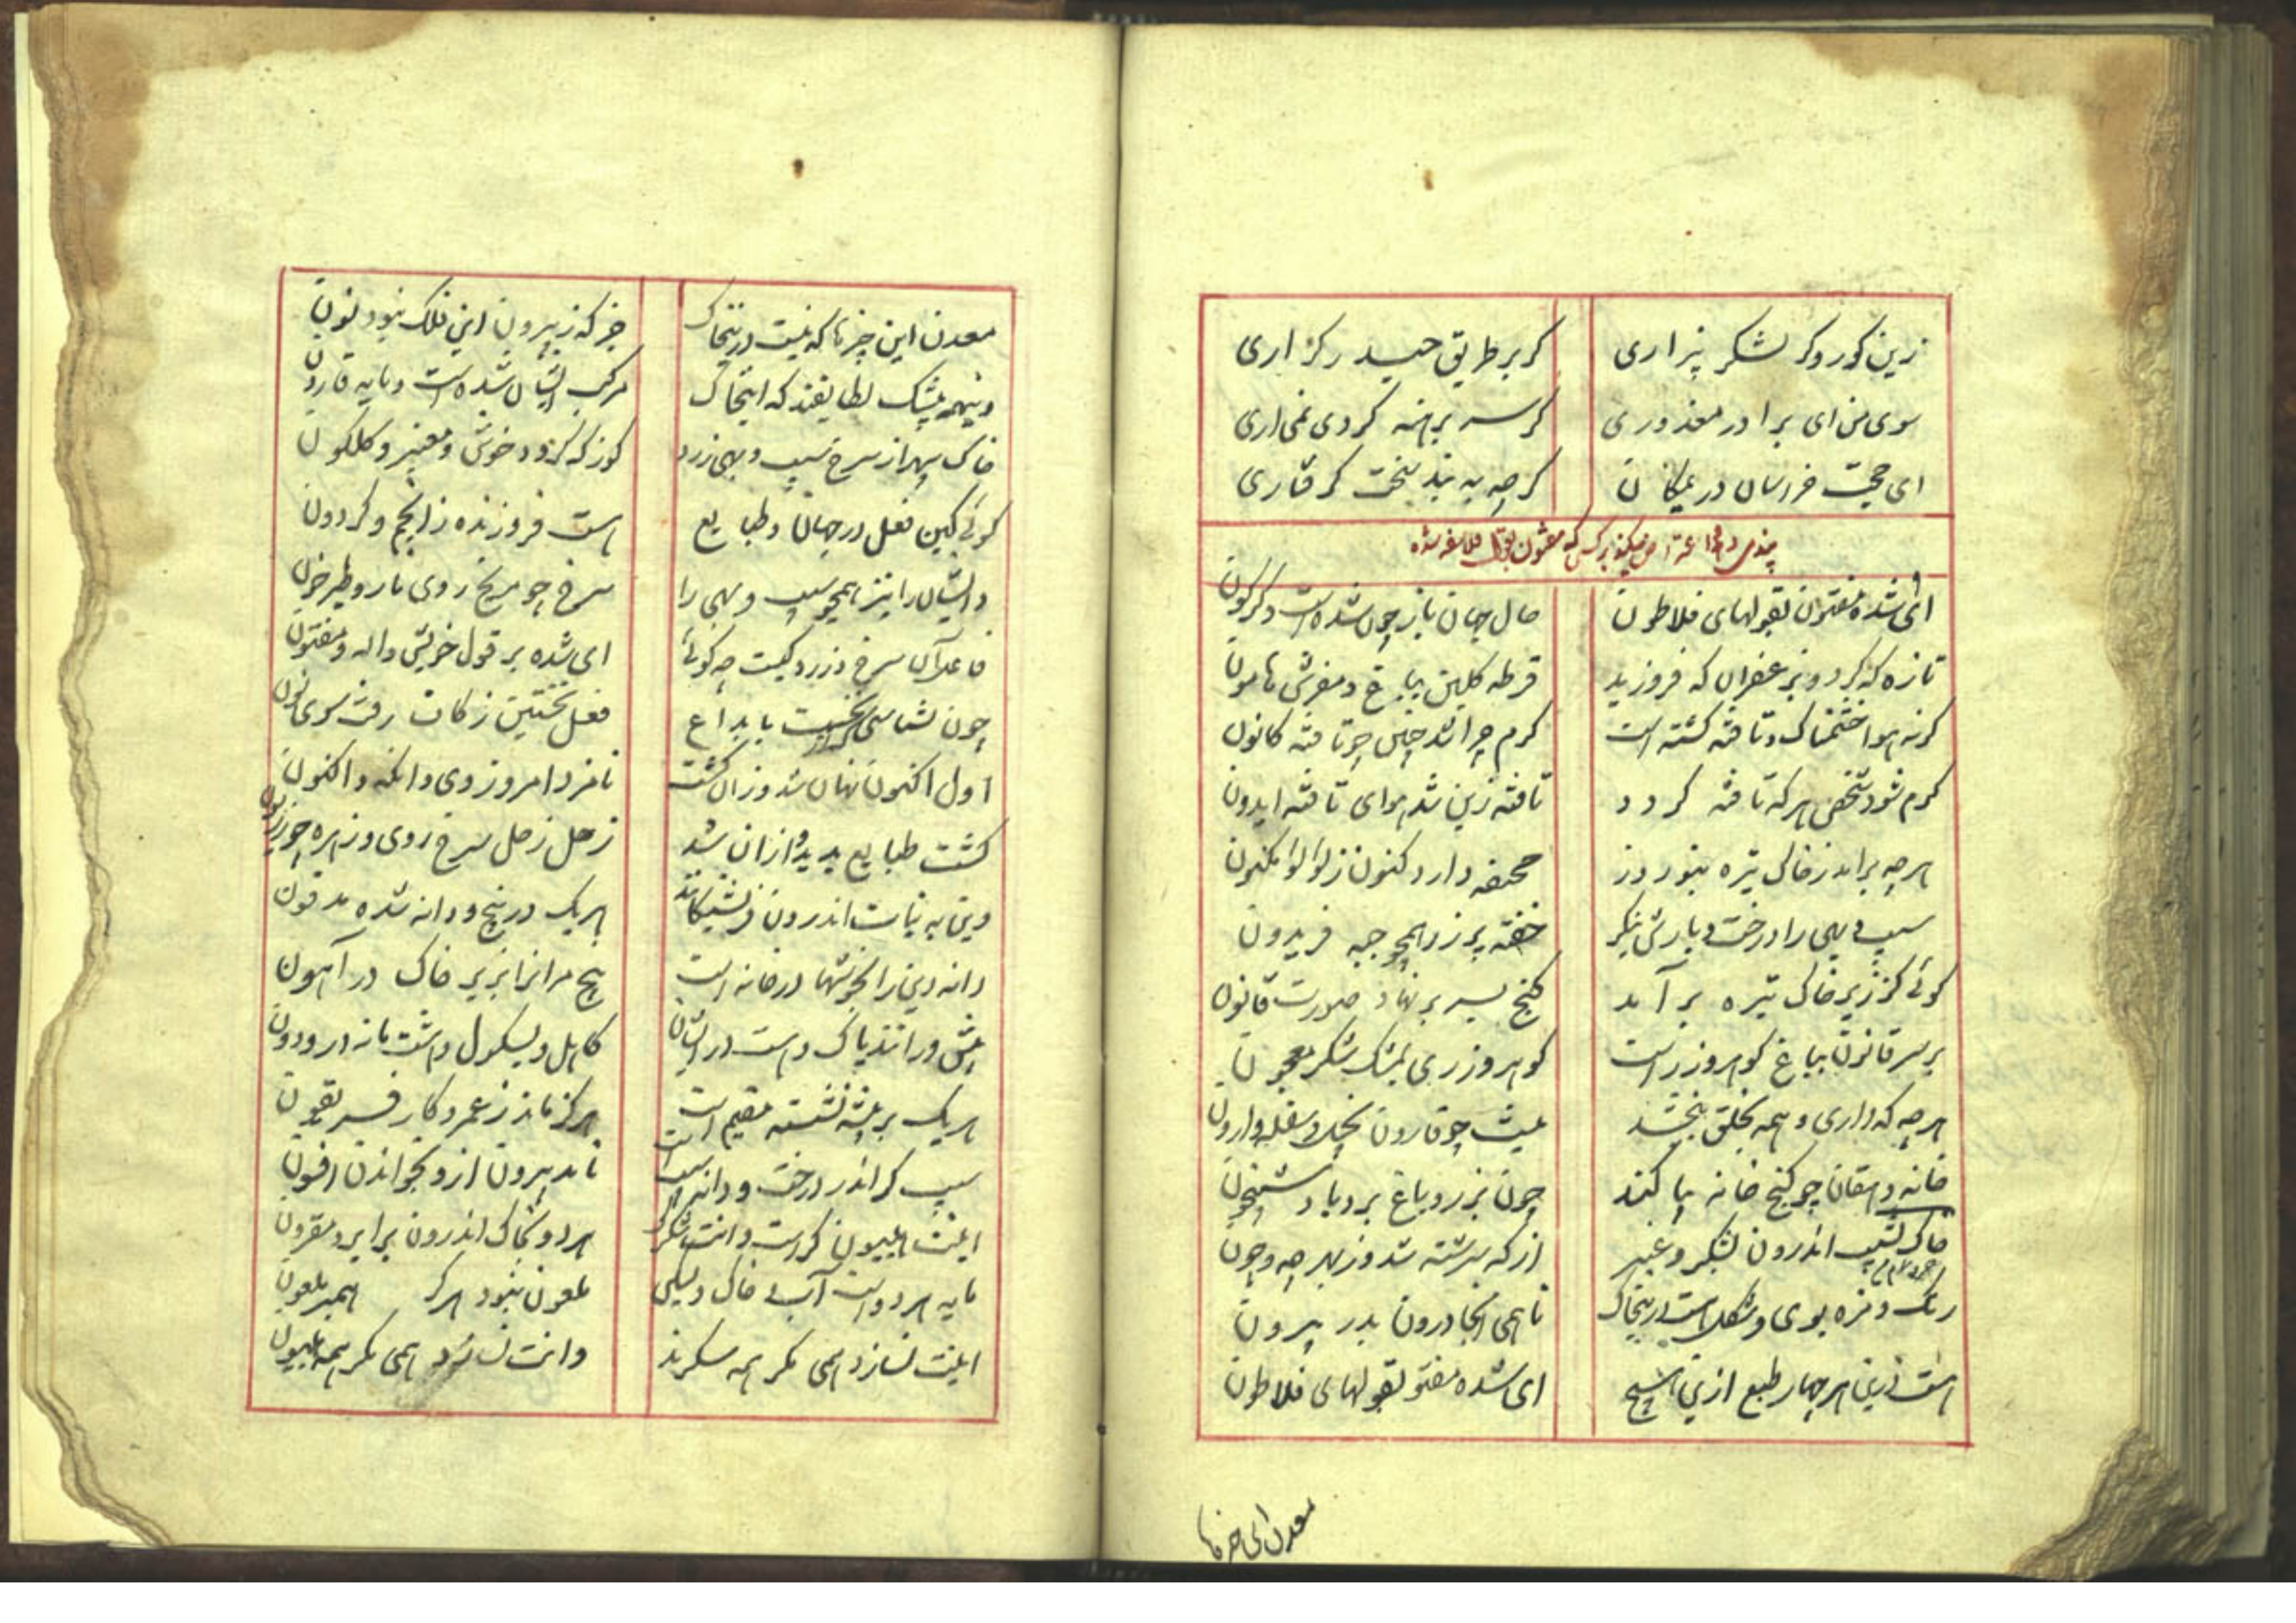 زین کور و کر لشکر بیزاری
کر بر طریق حیدر کراری
سوی من ای برادر معذوری
کر سر برهنه کردی نمی‌اری
ای حجت خراسان در یمکان
کرچه به بند سخت کرفتاری
ای شده مفتون بقولهای فلاطون
حال جهان باز چون شده است دکرکون
تازه که کرد و پر عفران که فروزید
قرطه کلبن بباغ و مفرش هامون
کرنه هوا خشمناک و تافته کشته است
کرم چرا شد چنین چو تافته کانون
کرم شود شخص هر که تافته کردد
تافته زین شد هوای تافته ایدون
هرچه براید ز خاک تیره بنوروز
مخنقه دارد کنون ز لولوا مکنون
سیب و بهی را درخت و بارش بنکر
خفته پر زر همچو جبه فریدون
کوئی کز زیر خاک تیره بر آمد
کنج بسر بر نهاد صورت قانون
بر سر قانون بباغ کوهر و زر است
کوهر و زر بی بمشک شکر معجون
هرچه که داری و همه بخلق ببخشد
نیست چو قارون بخیل و سفله و ارون
خانه دهقان چو کنج خانه بپا کند
چون بزر و باغ برد باد شبیخون
خاک نشیب اندرون بشکر و عنبر
از که سرشته شد و ز بهر چه و چون
رنک و مزه بوی و شکل است درینخاک
تا همی انجا درون بدر بیرون
هست درین هر چهار طبع ازین هیچ
ای شده مفتو بقولهای فلاطون
معدن این چیزها
معدن این چیزها که نیست درینخاک
جز که ز بیرون این فلک نبود نون
وینهمه بیشک لطایفند که اینخاک
مرکب ایشان شده است و مایه قارون
خاک سپهر از سرخ سیب و بهی زرد
کوز که کردد خوش و معنبر و کلکون
کوئی کین فعل در جهان و طبایع
است فروزنده ز انجم و کردون
وایشان را نیز همچو سیب و بهی را
سرخ چو مریخ روی نار و طبرخون
فاعل آن سرخ و زرد کیست چه کوئی
ای شده بر قول خویش واله و مفتون
چون نشناسی که نخست بابداع
فعل نخستین ز کاف رفت سوی نون
اول اکنون نهان شد و زان کشت
نامزد امروز وی و انکه و اکنون
کشت طبایع پدید ازان شد
زحل زحل سرخ روی و زهره چو زریون
وین به نبات اندرون فرشتکانند
هریک در بیخ و دانه شده مدفون
دانه دین را بخوشها در خانه است
بیخ مرانرا بزیر خاک در آهون
پیش ور انند پاک و است در ایشان
کاهل و بیشکول و اشت مانه در و دون
هریک بر پیشه نشسته مقیم است
هرکز ماند ز عمرو کار فریغون
سیب کر اندر درخت و دانه سیب است
ناید بیرون از و بخواندن افسون
اینت هلیون کراست وانت شکر کر
هر دو بخاک اندرون برابر و مقرون
مایه هر دو است آب و خاک ولیکی
ملعون نبود هرکز همبر ملعون
اینت نسازد همی مکر همه سکر ند
وانت نسازد همی مکر همه هلیون